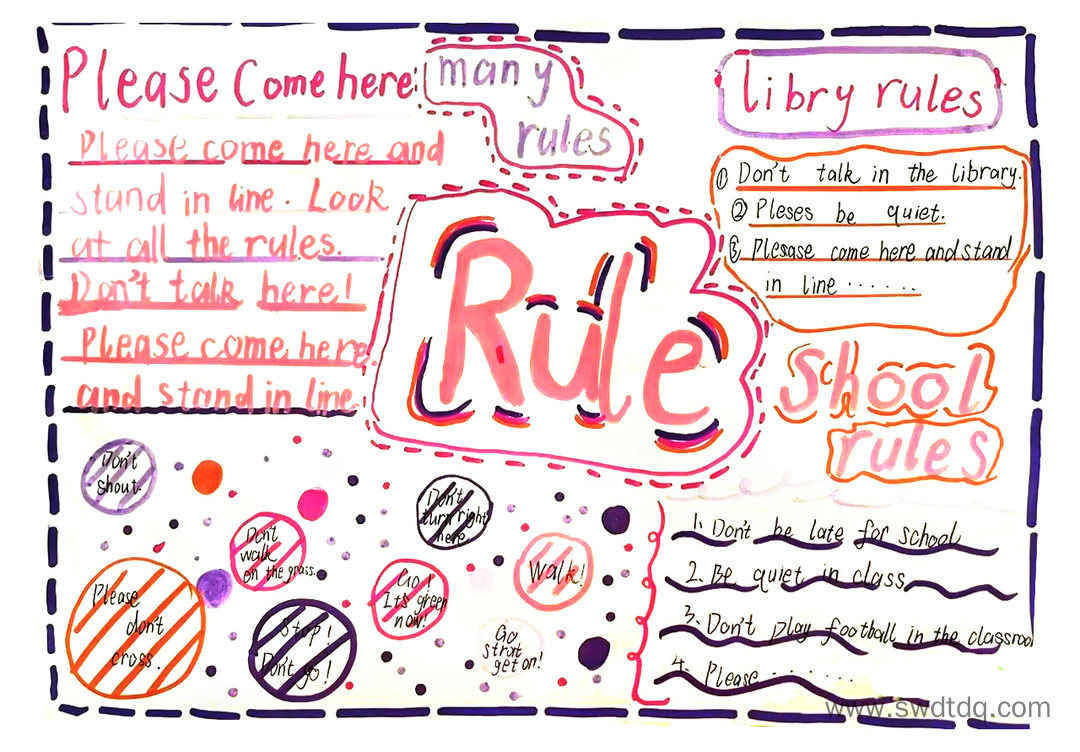 Please Come here
many
rules
Please come here and
stand in line. Look
at all the rules.
Don't talk here!
Please come here
and stand in line.
Rule
libry rules
① Don't talk in the library.
② Pleses be quiet.
③ Plesase come here and stand
in line ......
School
rules
1. Don't be late for school
2. Be quiet in class
3. Don't play football in the classrool
4. Please ......
Don't
shout.
Don't
walk
on the grass.
Don't
turn right
here
Go!
It's green
now!
Walk!
Please
don't
cross.
Stop!
Don't go!
Go
strat
get on!
www.swdtdq.com